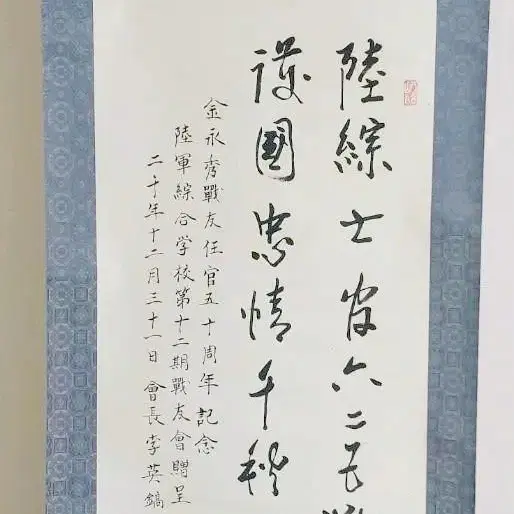 陸綜士官六二五
護國忠情千秋
金永秀戰友任官五十周年記念
陸軍綜合学校第十二期戰友會贈呈
二千年十二月三十一日 會長 李英鎬